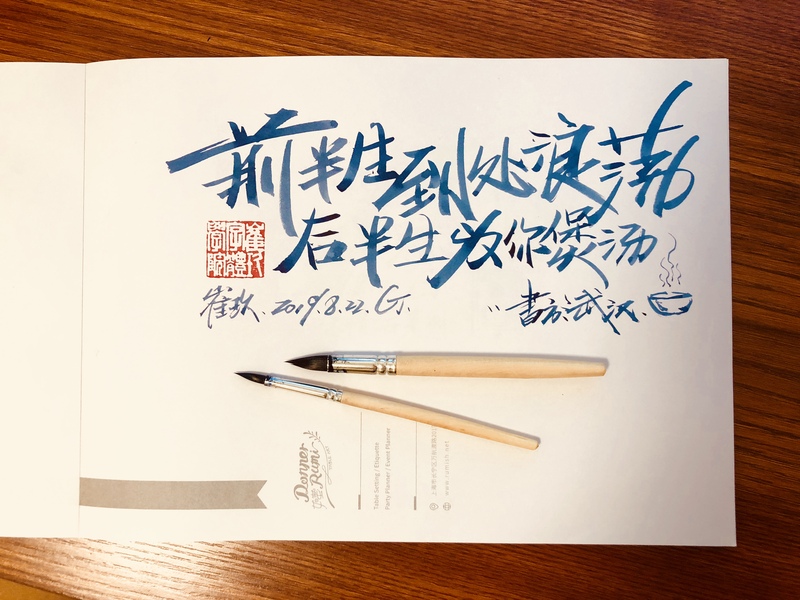 前半生到处浪荡
后半生为你煲汤
崔 2019.8.22.G.
書於武汉.
崔 字體學院
Donner
Rumi
Table Setting / Etiquette
Party Planner / Event Planner
www.rumish.net